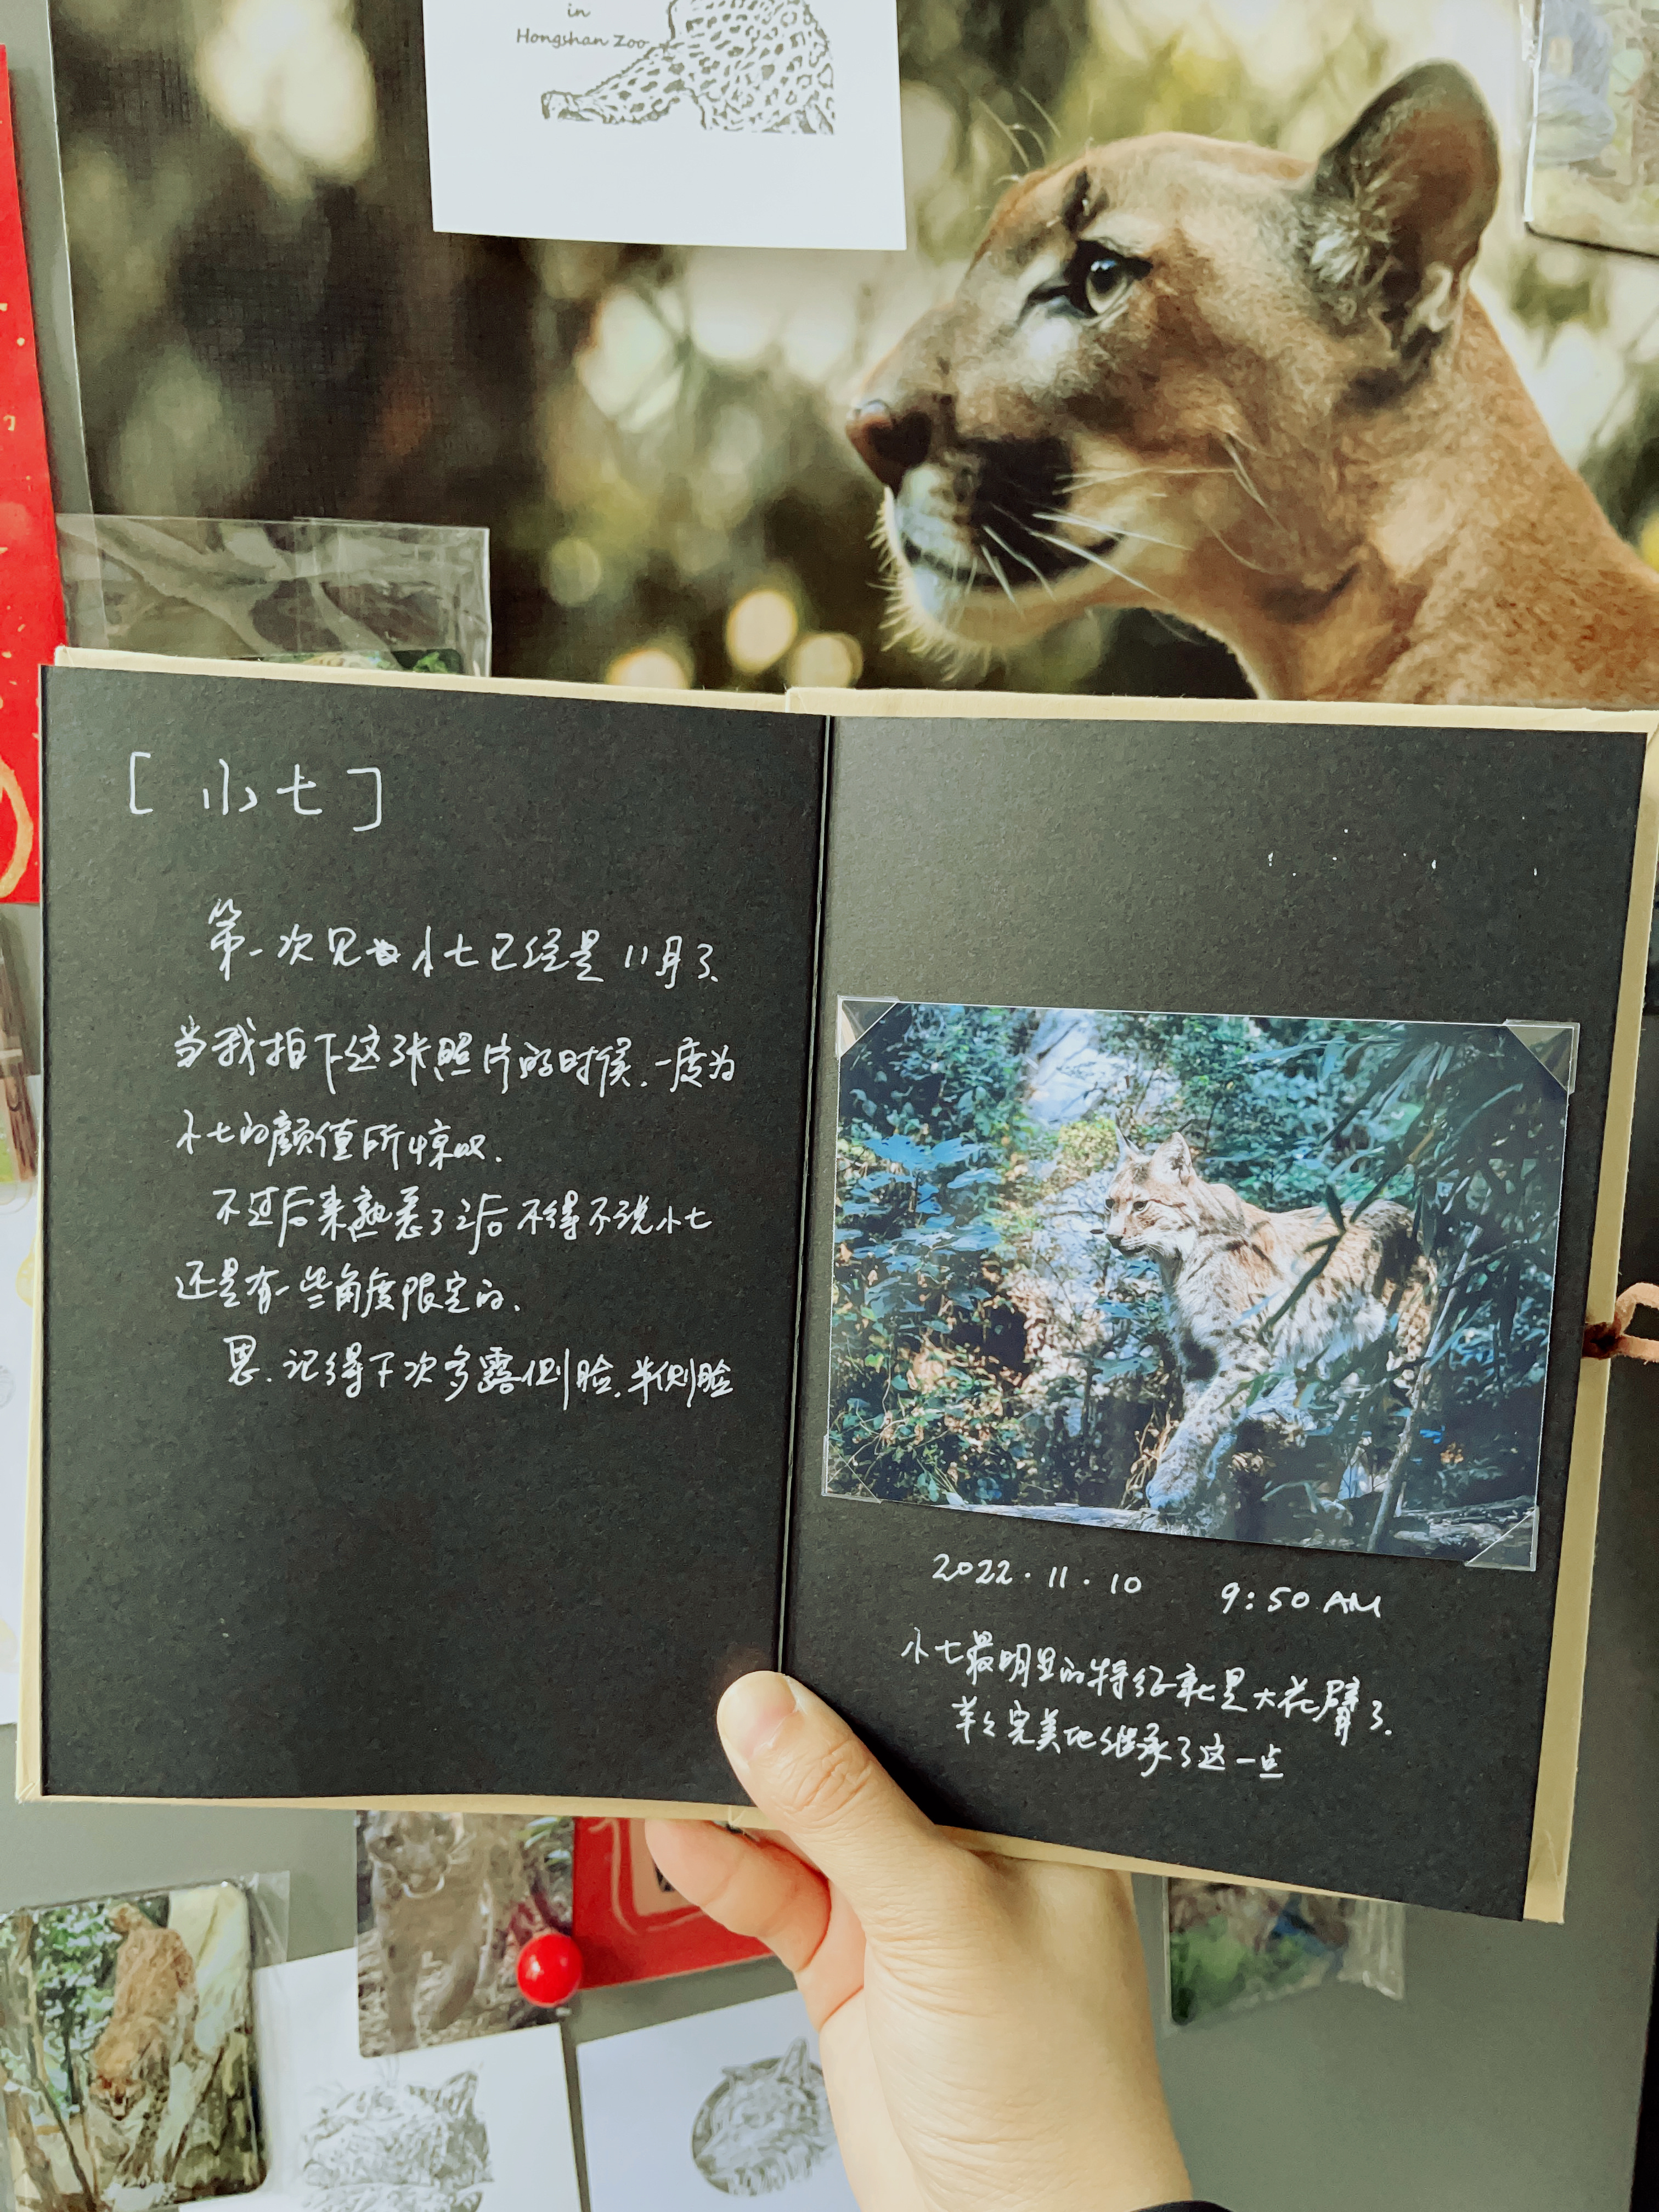 in
Hongshan Zoo
[ 小七 ]
第一次见小七已经是11月了、
当我拍下这张照片的时候、一度为
小七的颜值所惊叹、
不过后来熟悉了之后不得不说小七
还是有一些角度限定的、
恩、记得下次多露侧脸、半侧脸
2022.11.10 9:50 AM
小七最明显的特征就是大花臂了、
羊羊完美地继承了这一点